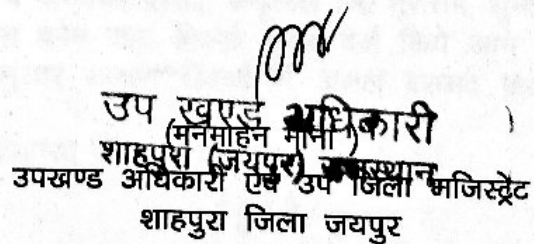 उप खण्ड अधिकारी
(मनमोहन मीना)
शाहपुरा (जयपुर) राजस्थान
उपखण्ड अधिकारी एवं उप जिला मजिस्ट्रेट
शाहपुरा जिला जयपुर